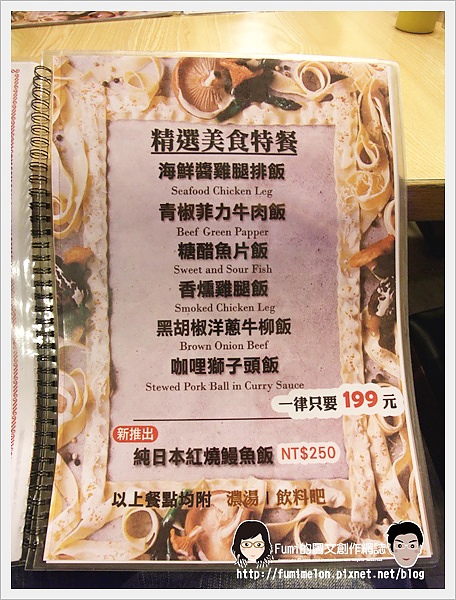 精選美食特餐
海鮮醬雞腿排飯
Seafood Chicken Leg
青椒菲力牛肉飯
Beef Green Papper
糖醋魚片飯
Sweet and Sour Fish
香燻雞腿飯
Smoked Chicken Leg
黑胡椒洋蔥牛柳飯
Brown Onion Beef
咖哩獅子頭飯
Stewed Pork Ball in Curry Sauce
一律只要 199 元
新推出
純日本紅燒鰻魚飯 NT$250
以上餐點均附 濃湯 | 飲料吧
Fumi的圖文創作網誌
http://fumimelon.pixnet.net/blog